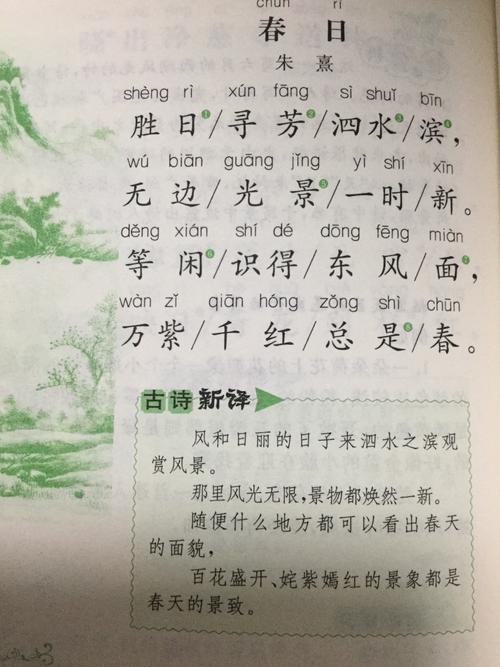 chūn rì
春日
朱熹
shèng rì xún fāng sì shuǐ bīn
胜日❶/寻芳❷/泗水❸/滨❹，
wú biān guāng jǐng yì shí xīn
无边/光景❺/一时/新。
děng xián shí dé dōng fēng miàn
等闲❻/识得/东风/面❼，
wàn zǐ qiān hóng zǒng shì chūn
万紫/千红/总是❽/春。
古诗新译
风和日丽的日子来泗水之滨观
赏风景。
那里风光无限，景物都焕然一新。
随便什么地方都可以看出春天
的面貌，
百花盛开、姹紫嫣红的景象都是
春天的景致。